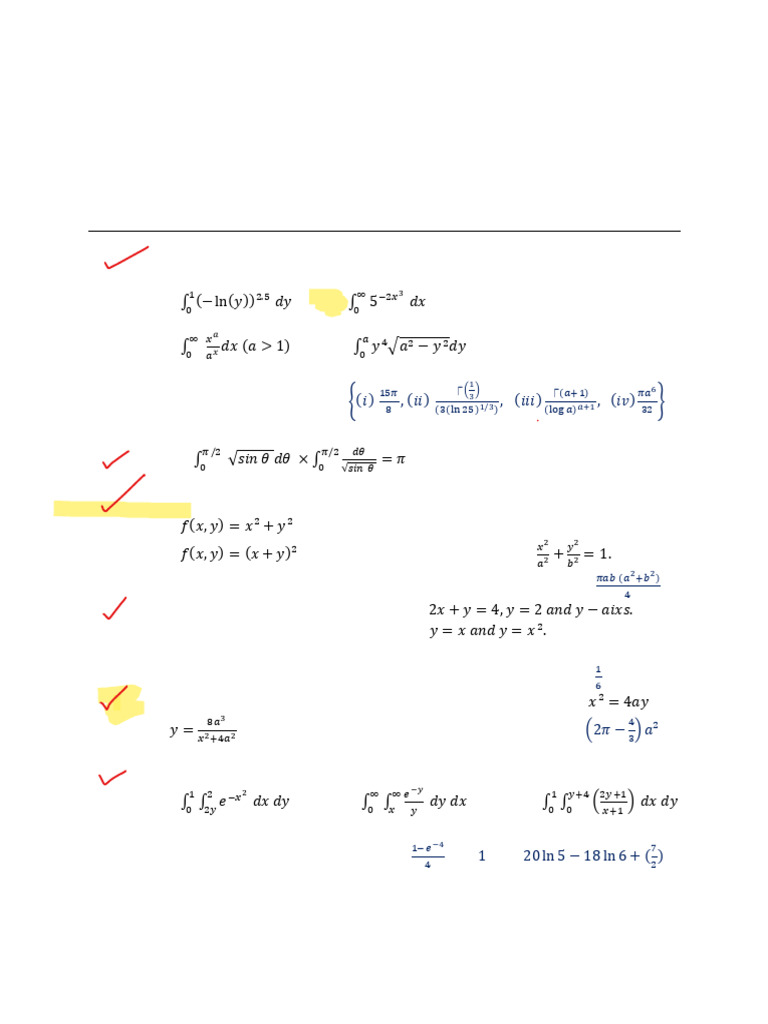 ∫₀¹(−ln(y))^2.5 dy ∫₀^∞ 5^(−2x³) dx
∫₀^∞ x^a/a^x dx (a > 1) ∫₀^a y⁴√(a² − y²)dy
{(i) 15π/8, (ii) Γ(1/3)/(3(ln 25)^1/3), (iii) Γ(a+1)/(log a)^(a+1), (iv) πa⁶/32}
∫₀^(π/2) √(sin θ) dθ × ∫₀^(π/2) dθ/√(sin θ) = π
f(x, y) = x² + y²
f(x, y) = (x + y)² x²/a² + y²/b² = 1.
πab (a²+b²)/4
2x + y = 4, y = 2 and y − aixs.
y = x and y = x².
1/6
x² = 4ay
y = 8a³/(x²+4a²) (2π − 4/3) a²
∫₀¹ ∫_2y^2 e^(−x²) dx dy ∫₀^∞ ∫_x^∞ e^(−y)/y dy dx ∫₀¹ ∫₀^(y+4) ((2y+1)/(x+1)) dx dy
(1−e^(−4))/4 1 20 ln 5 − 18 ln 6 + (7/2)